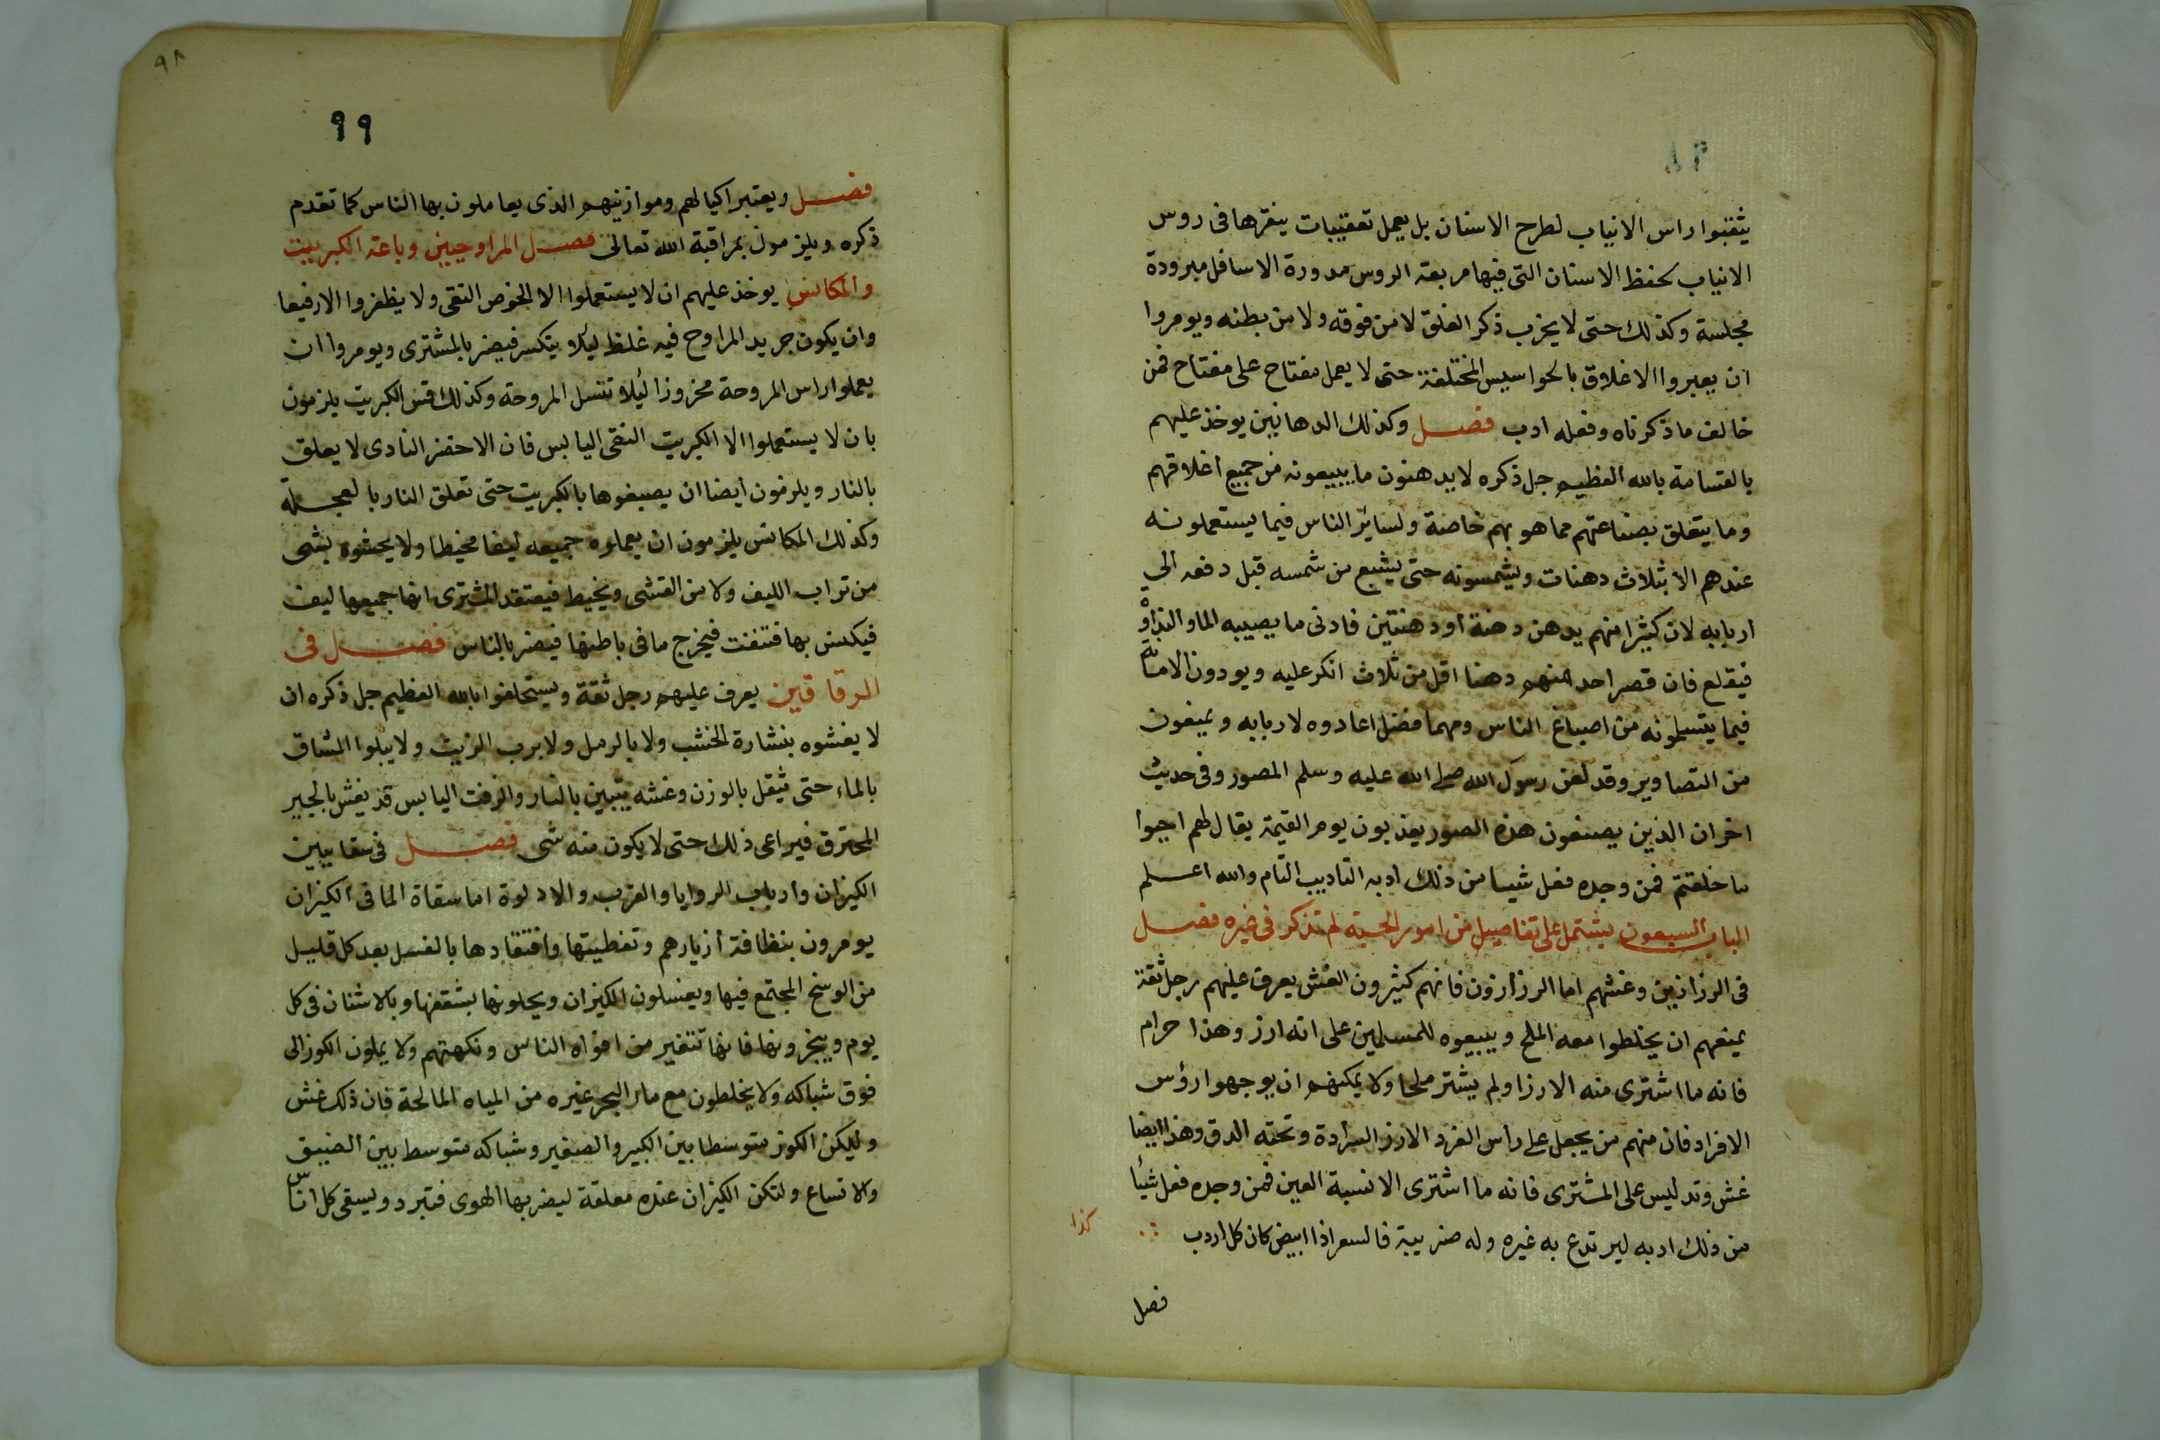 يثقبوا راس الانياب لطرح الاسنان بل يعمل تعقيبات ينقرها فى روس
الانياب لحفظ الاسنان التى فيها مربعة الروس مدورة الاسافل مبرودة
مجلسة وكذلك حتى لا يخرب ذكر الغلق لا من فوقه ولا من بطنه ويومروا
ان يعبروا الاغلاق بالحواسيس المختلفة حتى لا يعمل مفتاح على مفتاح فمن
خالف ما ذكرناه وفعله ادب فصل وكذلك الدهانين يوخذ عليهم
بالقسامة بالله العظيم جل ذكره لا يدهنون ما يبيعونه من جميع اغلاقهم
وما يتعلق بصناعتهم مما هو بهم خاصة ولسائر الناس فيما يستعملونه
عندهم الا بثلاث دهنات ويشمسونه حتى يشبع من شمسه قبل دفعه الى
اربابه لان كثيرا منهم يدهن دهنة او دهنتين فادنى ما يصيبه الما والنداوة
فيقلع فان قصر احد منهم دهنا اقل من ثلاث انكر عليه ويودون الامانة
فيما يتسلمونه من اصباغ الناس ومهما فضل اعادوه لاربابه ويمنعون
من التصاوير وقد لعن رسول الله صلى الله عليه وسلم المصور وفى حديث
اخر ان الذين يصنعون هذه الصور يعذبون يوم القيمة يقال لهم احيوا
ما خلقتم فمن وجده فعل شيا من ذلك ادبه التاديب التام والله اعلم
الباب السبعون يشتمل على تفاصيل من امور الحسبة لم تذكر فى غيره فصل
فى الرزازين وغشهم اما الرزازون فانهم كثيرون الغش يعرف عليهم رجل ثقة
يمنعهم ان يخلطوا معه الملح ويبيعوه للمسلمين على انه ارز وهذا حرام
فانه ما اشترى منه الا رزا ولم يشتر ملحا ولا يمكنهم ان يوجهوا رؤس
الافراد فان منهم من يجعل على راس الفرد الارز السرادة وتحته الدق وهذا ايضا
غش وتدليس على المشترى فانه ما اشترى الا نسبة العين فمن وجده فعل شيأ
من ذلك ادبه ليرتدع به غيره وله ضريبة فالسعر اذا ابيض كان كل اردب
كذا
فصل
٩٨
٩٩
فصل ويعتبر اكيالهم وموازينهم الذى يعاملون بها الناس كما تقدم
ذكره ويلزمون بمراقبة الله تعالى فصل المراوحيين وباعة الكبريت
والمكانس يوخذ عليهم ان لا يستعملوا الا الخوص النقى ولا يظفروا الا رفيعا
وان يكون جريد المراوح فيه غلظ ليلا يتكسر فيضر بالمشترى ويومروا ان
يعملوا راس المروحة مخروزا ليلا تنسل المروحة وكذلك قش الكبريت يلزمون
بان لا يستعملوا الا الكبريت النقى اليابس فان الاخضر النادى لا يعلق
بالنار ويلزمون ايضا ان يصبغوها بالكبريت حتى تعلق النار با لعجلة
وكذلك المكانس يلزمون ان يعملوه جميعه ليفا مخيطا ولا يحشوه بشى
من تراب الليف ولا من القشى ويخيط فيعتقد المشترى انها جميعها ليف
فيكنس بها فتفت فيخرج ما فى باطنها فيضر بالناس فصل فى
الرقاقين يعرف عليهم رجل ثقة ويستحلفوا بالله العظيم جل ذكره ان
لا يغشوه بنشارة الخشب ولا بالرمل ولا برب الزيت ولا يبلوا المشاق
بالماء حتى يثقل بالوزن وغشه يتبين بالنار والزفت اليابس قد يغش بالجير
المحترق فيراعى ذلك حتى لا يكون منه شى فصل فى سقايين
الكيزان وارباب الروايا والقرب والادلوة اما سقاة الما فى الكيزان
يومرون بنظافة ازيارهم وتغطيتها وافتقادها بالغسل بعد كل قليل
من الوسخ المجتمع فيها ويغسلون الكيزان ويجلونها بشقفها وبالاشنان فى كل
يوم ويبخرونها فانها تتغير من افواه الناس ونكهتهم ولا يملون الكوز الى
فوق شباكه ولا يخلطون مع ماء البحر غيره من المياه المالحة فان ذلك غش
وليكن الكوز متوسطا بين الكبير والصغير وشباكه متوسط بين الضيق
والاتساع ولتكن الكيزان عنده معلقة ليضر بها الهوى فتبرد ويسقى كل اناس